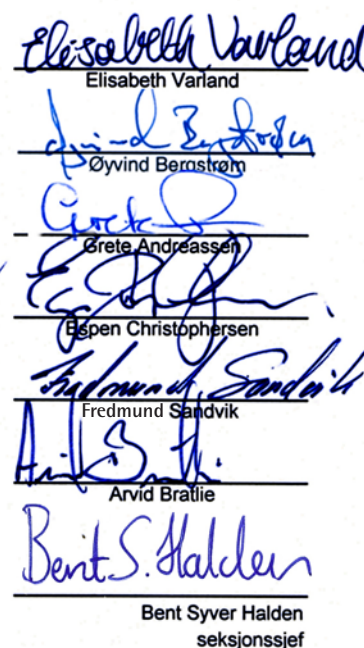 Elisabeth Varland
Elisabeth Varland
Øyvind Bergstrøm
Øyvind Bergstrøm
Grete Andreassen
Espen Christophersen
Fredmund Sandvik
Fredmund Sandvik
Arvid Bratlie
Bent S. Halden
Bent Syver Halden
seksjonssjef